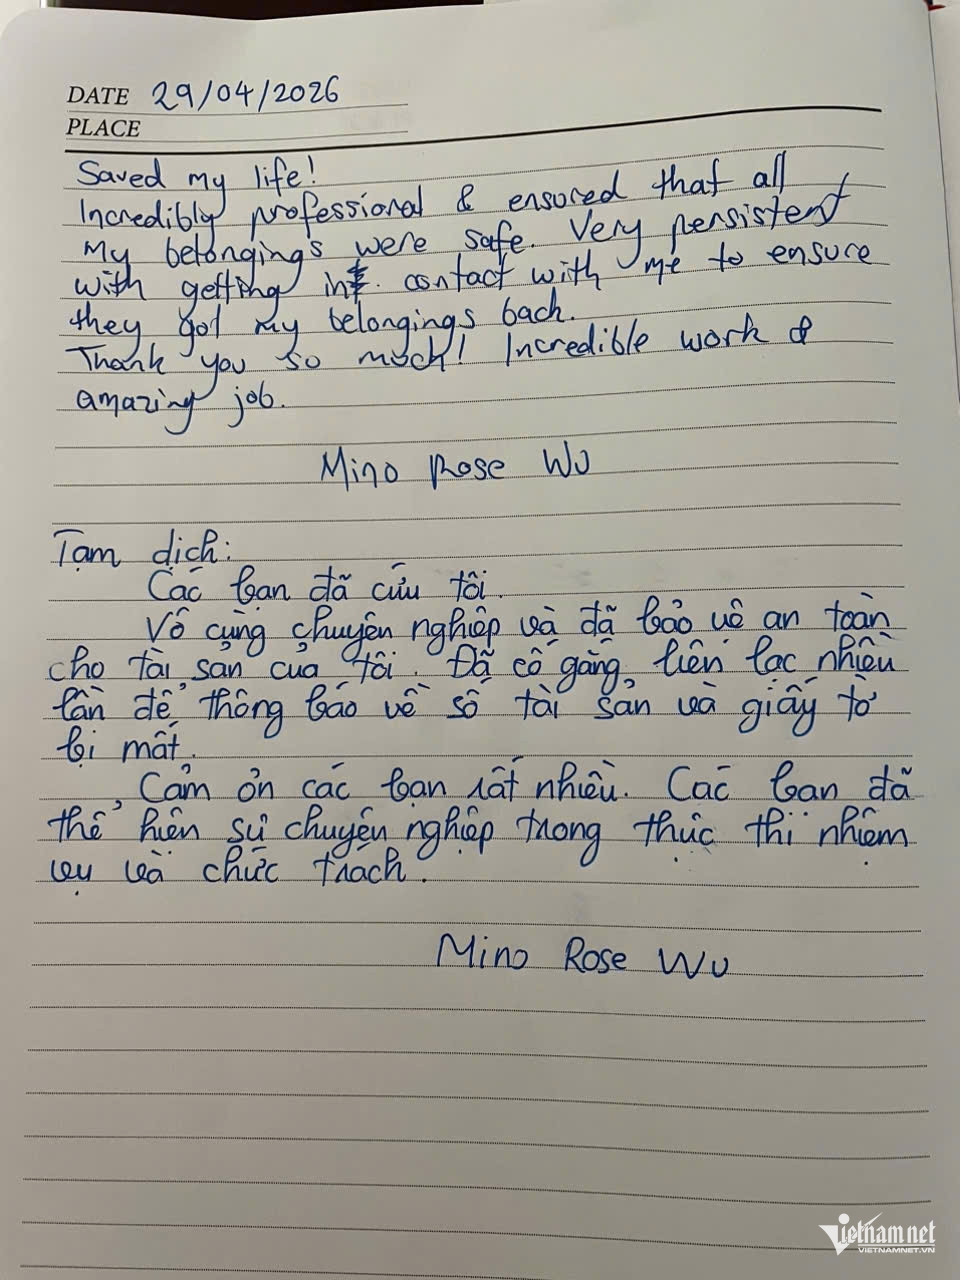 DATE 29/04/2026
PLACE
Saved my life!
Incredibly professional & ensured that all
my belongings were safe. Very persistent
with getting in contact with me to ensure
they got my belongings back.
Thank you so much! Incredible work &
amazing job.
Mino Rose Wu
Tạm dịch:
Các bạn đã cứu tôi.
Vô cùng chuyên nghiệp và đã bảo vệ an toàn
cho tài sản của tôi. Đã cố gắng liên lạc nhiều
lần để thông báo về số tài sản và giấy tờ
bị mất.
Cảm ơn các bạn rất nhiều. Các bạn đã
thể hiện sự chuyên nghiệp trong thực thi nhiệm
vụ và chức trách.
Mino Rose Wu
Vietnamnet
VIETNAMNET.VN